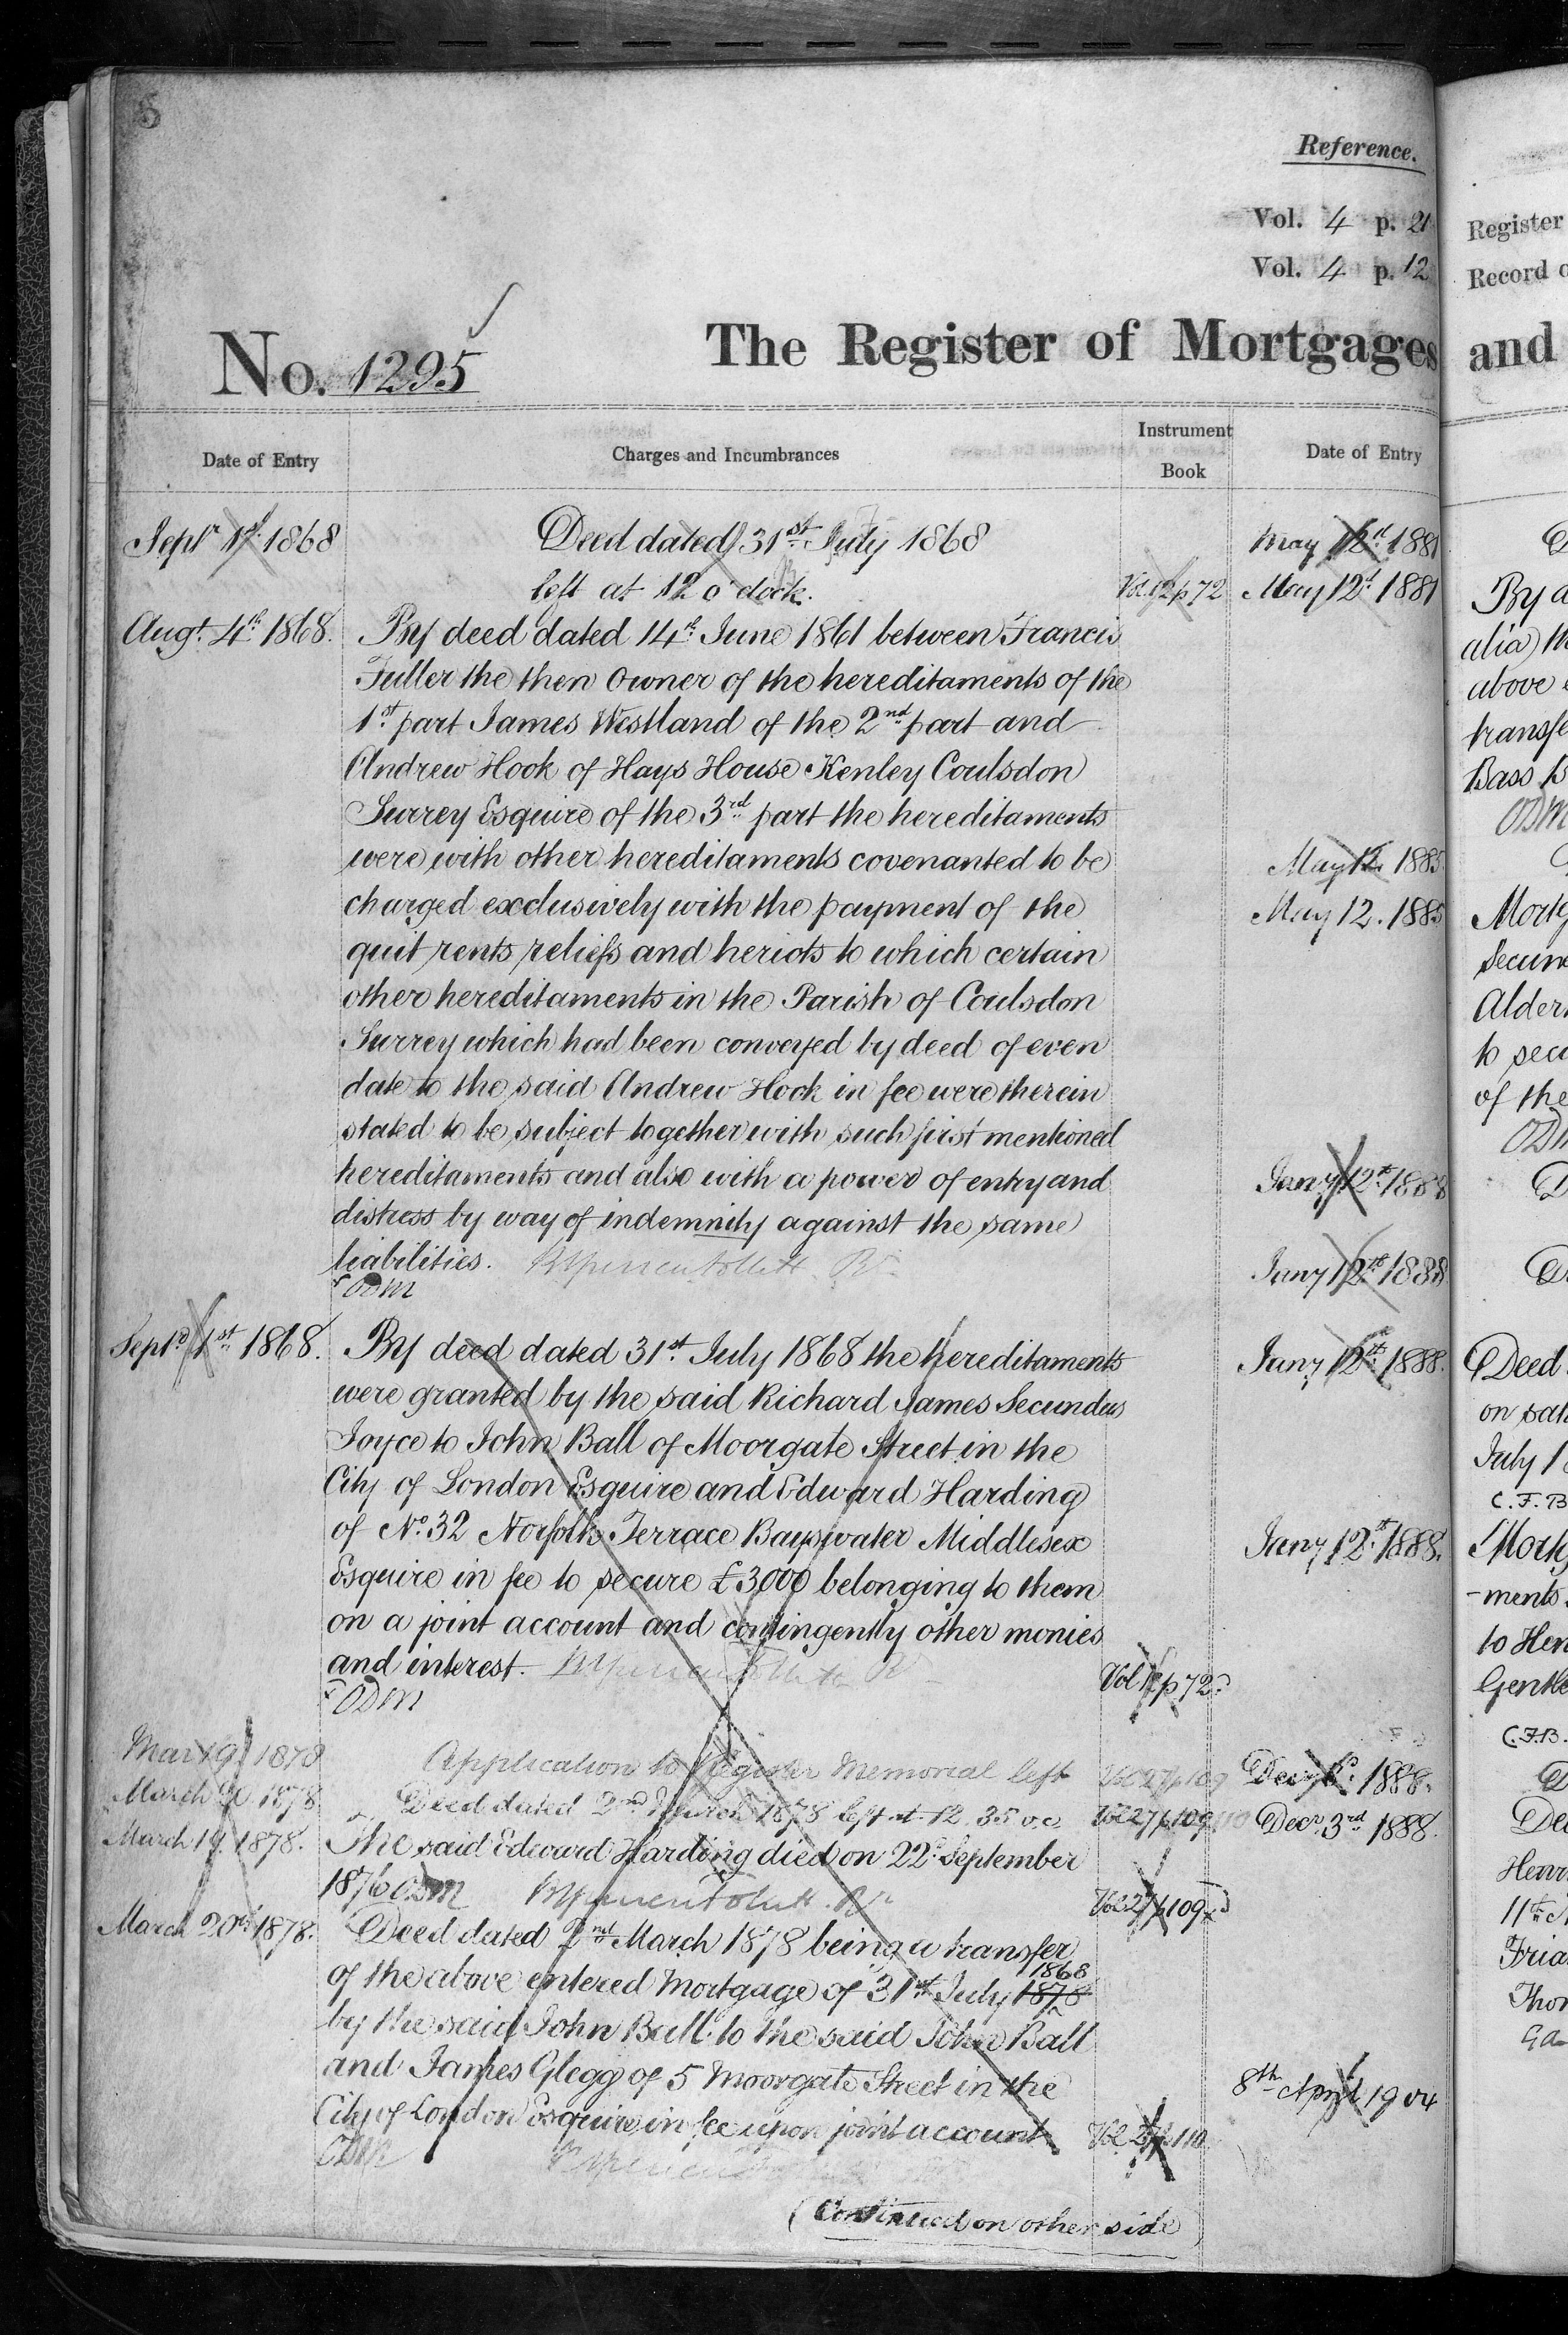 8
Reference.
Vol. 4 p. 21
Vol. 4 p. 12
No. 1295
The Register of Mortgages
Date of Entry
Charges and Incumbrances
Instrument Book
Date of Entry
Septr 1st 1868
Deed dated 31st July 1868
left at 12 o'clock.
Vol 12 p 72
Augt. 4th 1868.
By deed dated 14th June 1861 between Francis
Fuller the then Owner of the hereditaments of the
1st part James Westland of the 2nd part and
Andrew Hook of Hays House Kenley Coulsdon
Surrey Esquire of the 3rd part the hereditaments
were with other hereditaments covenanted to be
charged exclusively with the payment of the
quit rents reliefs and heriots to which certain
other hereditaments in the Parish of Coulsdon
Surrey which had been conveyed by deed of even
date to the said Andrew Hook in fee were therein
stated to be subject together with such first mentioned
hereditaments and also with a power of entry and
distress by way of indemnity against the same
liabilities.
ODM
Septr 1st 1868.
By deed dated 31st July 1868 the hereditaments
were granted by the said Richard James Secundus
Joyce to John Ball of Moorgate Street in the
City of London Esquire and Edward Harding
of No. 32 Norfolk Terrace Bayswater Middlesex
Esquire in fee to secure £3000 belonging to them
on a joint account and contingently other monies
and interest.
Vol 12 p 72
ODM
Mar 19 1878
Application to Register Memorial left
Vol 27 p 109
March 20 1878
Deed dated 2nd March 1878 left at 12.35 o.c.
Vol 27 p 109 110
March 19. 1878.
The said Edward Harding died on 22d September
1876 ODM
Vol 27 p 109
March 20th 1878.
Deed dated 2nd March 1878 being a transfer
of the above entered Mortgage of 31st July 1878 1868
by the said John Ball to the said John Ball
and James Glegg of 5 Moorgate Street in the
City of London Esquire in fee upon joint account
Vol 27 p 110
ODM
(Continued on other side)
May 12th 1881
May 12th 1881
May 12. 1885
May 12. 1885
Jany 12th 1888
Jany 12th 1888
Jany 12th 1888.
Jany 12th 1888.
Decr 3rd 1888.
Decr. 3rd 1888.
8th April 1904
Register
Record
and
By
alia)
above
transfe
Bass
ODM
Mortg
Secur
Alder
to secu
of the
ODM
Deed
on sal
July 1
C.F.B
Mortg
-ments
to Hen
Gentle
C.F.B.
Dee
Henr
11th
Fria
Thom